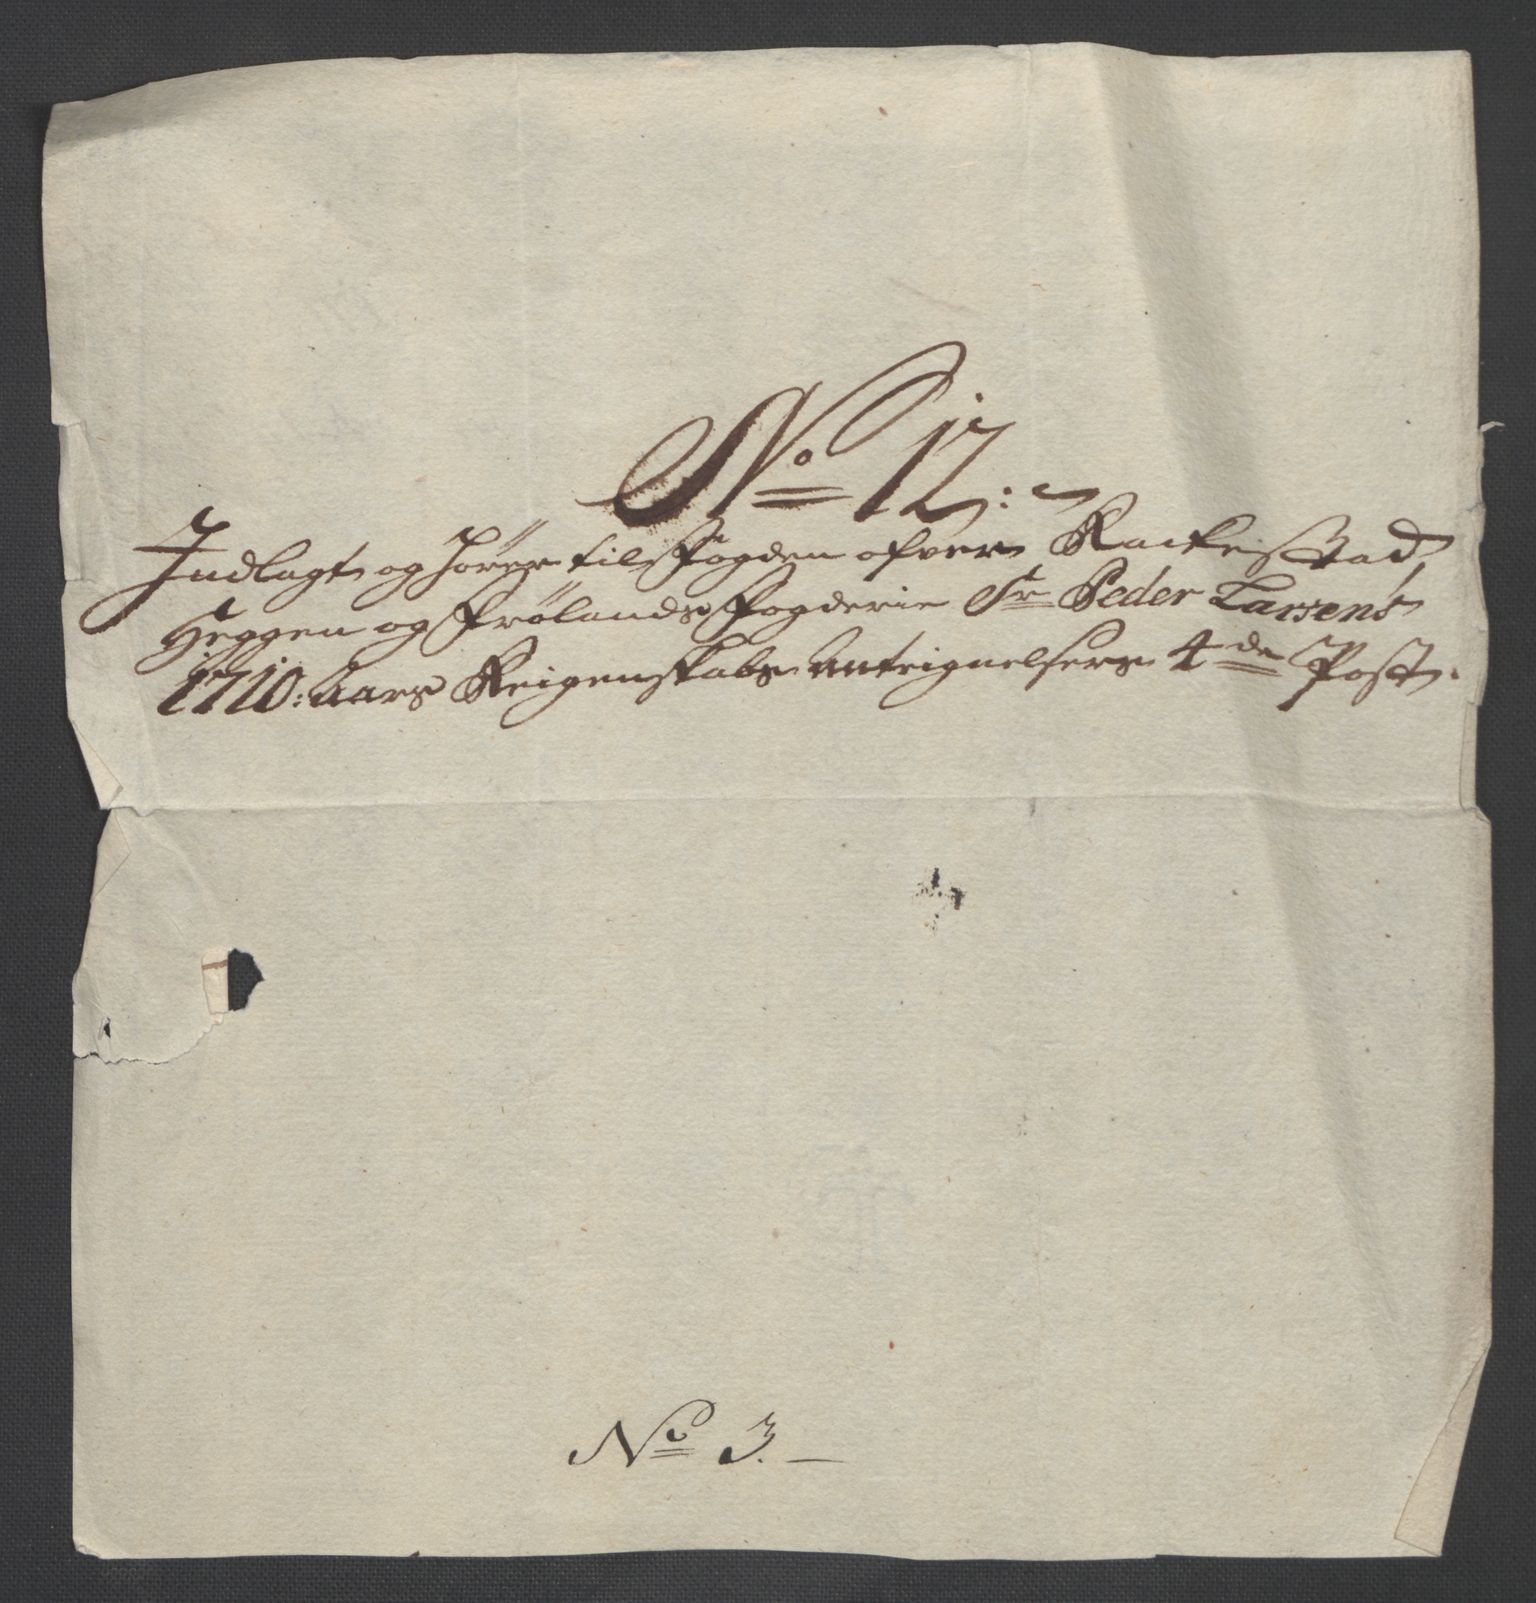 No 12:
Indlagt og hører til Fogden ofver Rackestad,
Heggen og Frølands Fogderie Sr Peder Larsens
1710: Aars Reigenskabs Anteignelsers 4de Post.
No 3.